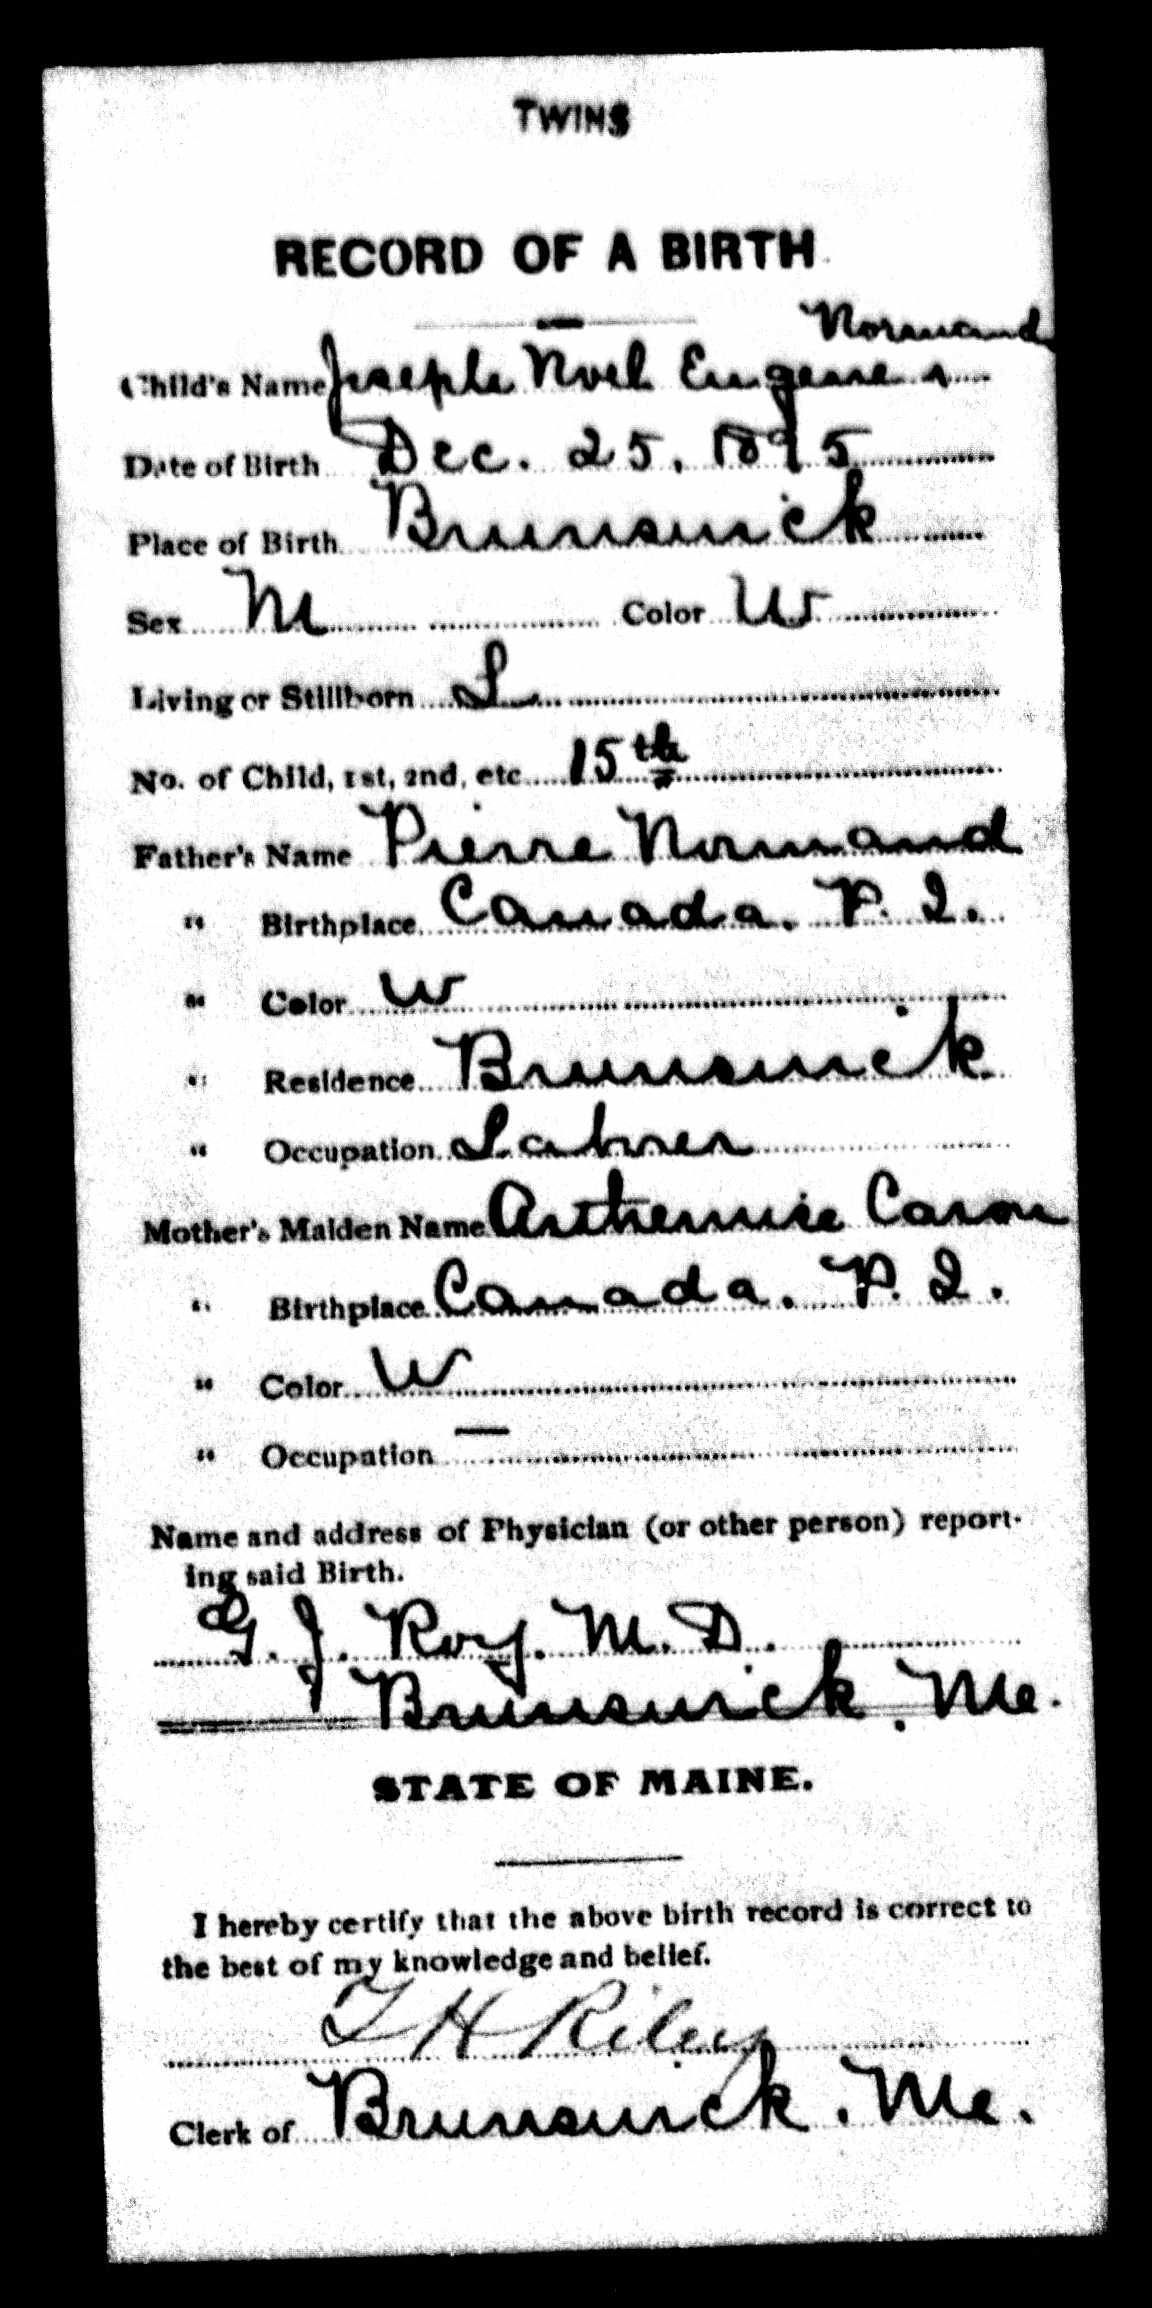 TWINS
RECORD OF A BIRTH
Normand
Child's Name Joseph Noel Eugene
Date of Birth Dec. 25, 1895
Place of Birth Brunswick
Sex M Color W
Living or Stillborn L
No. of Child, 1st, 2nd, etc 15th
Father's Name Pierre Normand
" Birthplace Canada. P. Q.
" Color W
" Residence Brunswick
" Occupation Laborer
Mother's Maiden Name Arthemise Caron
" Birthplace Canada. P. Q.
" Color W
" Occupation —
Name and address of Physician (or other person) report-
ing said Birth.
G. J. Roy. M. D.
Brunswick, Me.
STATE OF MAINE.
I hereby certify that the above birth record is correct to
the best of my knowledge and belief.
T H Riley
Clerk of Brunswick. Me.